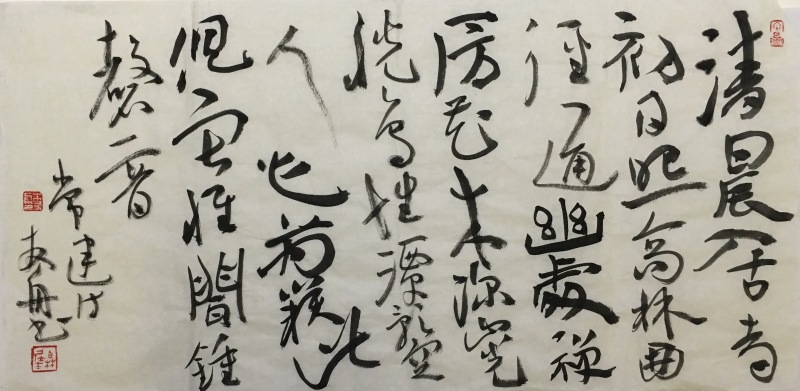 清晨入古寺
初日照高林曲
径通幽處禅
房花木深山光
悦鸟性潭影空
人心萬籁此
俱寂惟聞鍾
磬音
常建诗